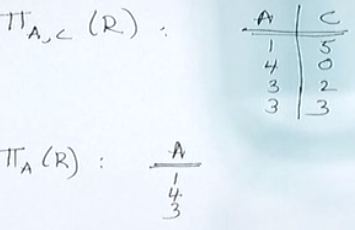 π A, C (R) :
A C
1 5
4 0
3 2
3 3
π A (R) :
A
1
4
3